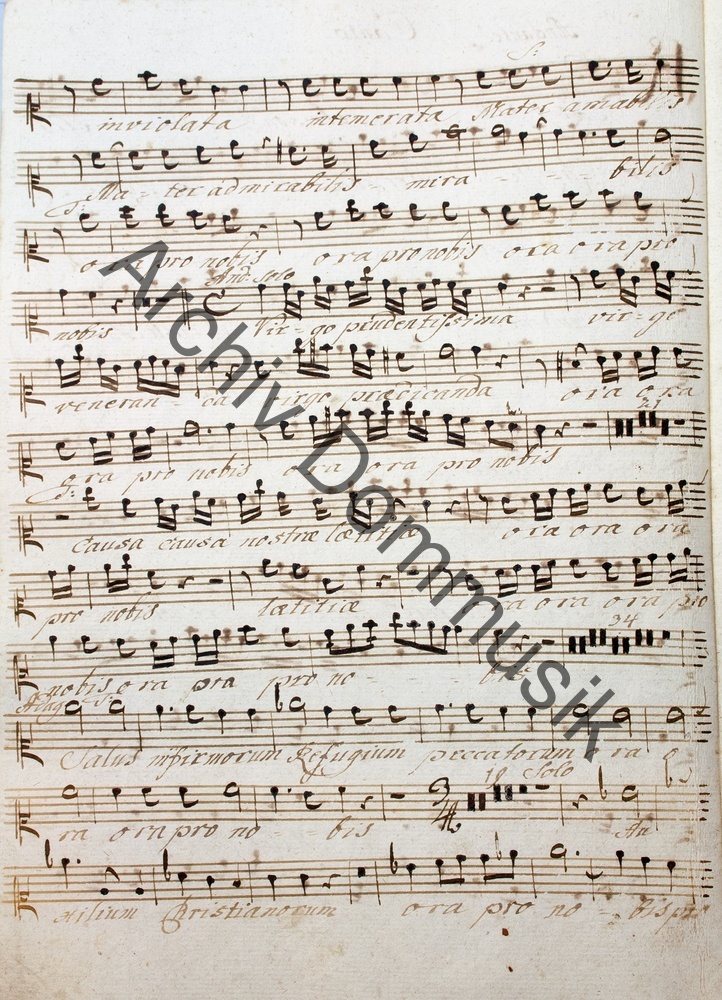 S:
inviolata intemerata Mater amabilis
Ma - ter admirabilis - mira - - - bilis
ora pro nobis ora pro nobis ora ora pro
And: Solo
nobis Vir - go prudentissima vir - go
veneran - da virgo prædicanda ora ora
ora pro nobis ora ora pro nobis
causa causa nostræ lætitiæ ora ora ora
pro nobis lætitiæ ora ora ora pro
34
nobis ora ora pro no - - bis
Adag°
Salus infirmorum Refugium peccatorum ora o
19 Solo
ra ora pro no - - bis Au
xilium Christianorum ora pro no - bis pro
Archiv Dommusik